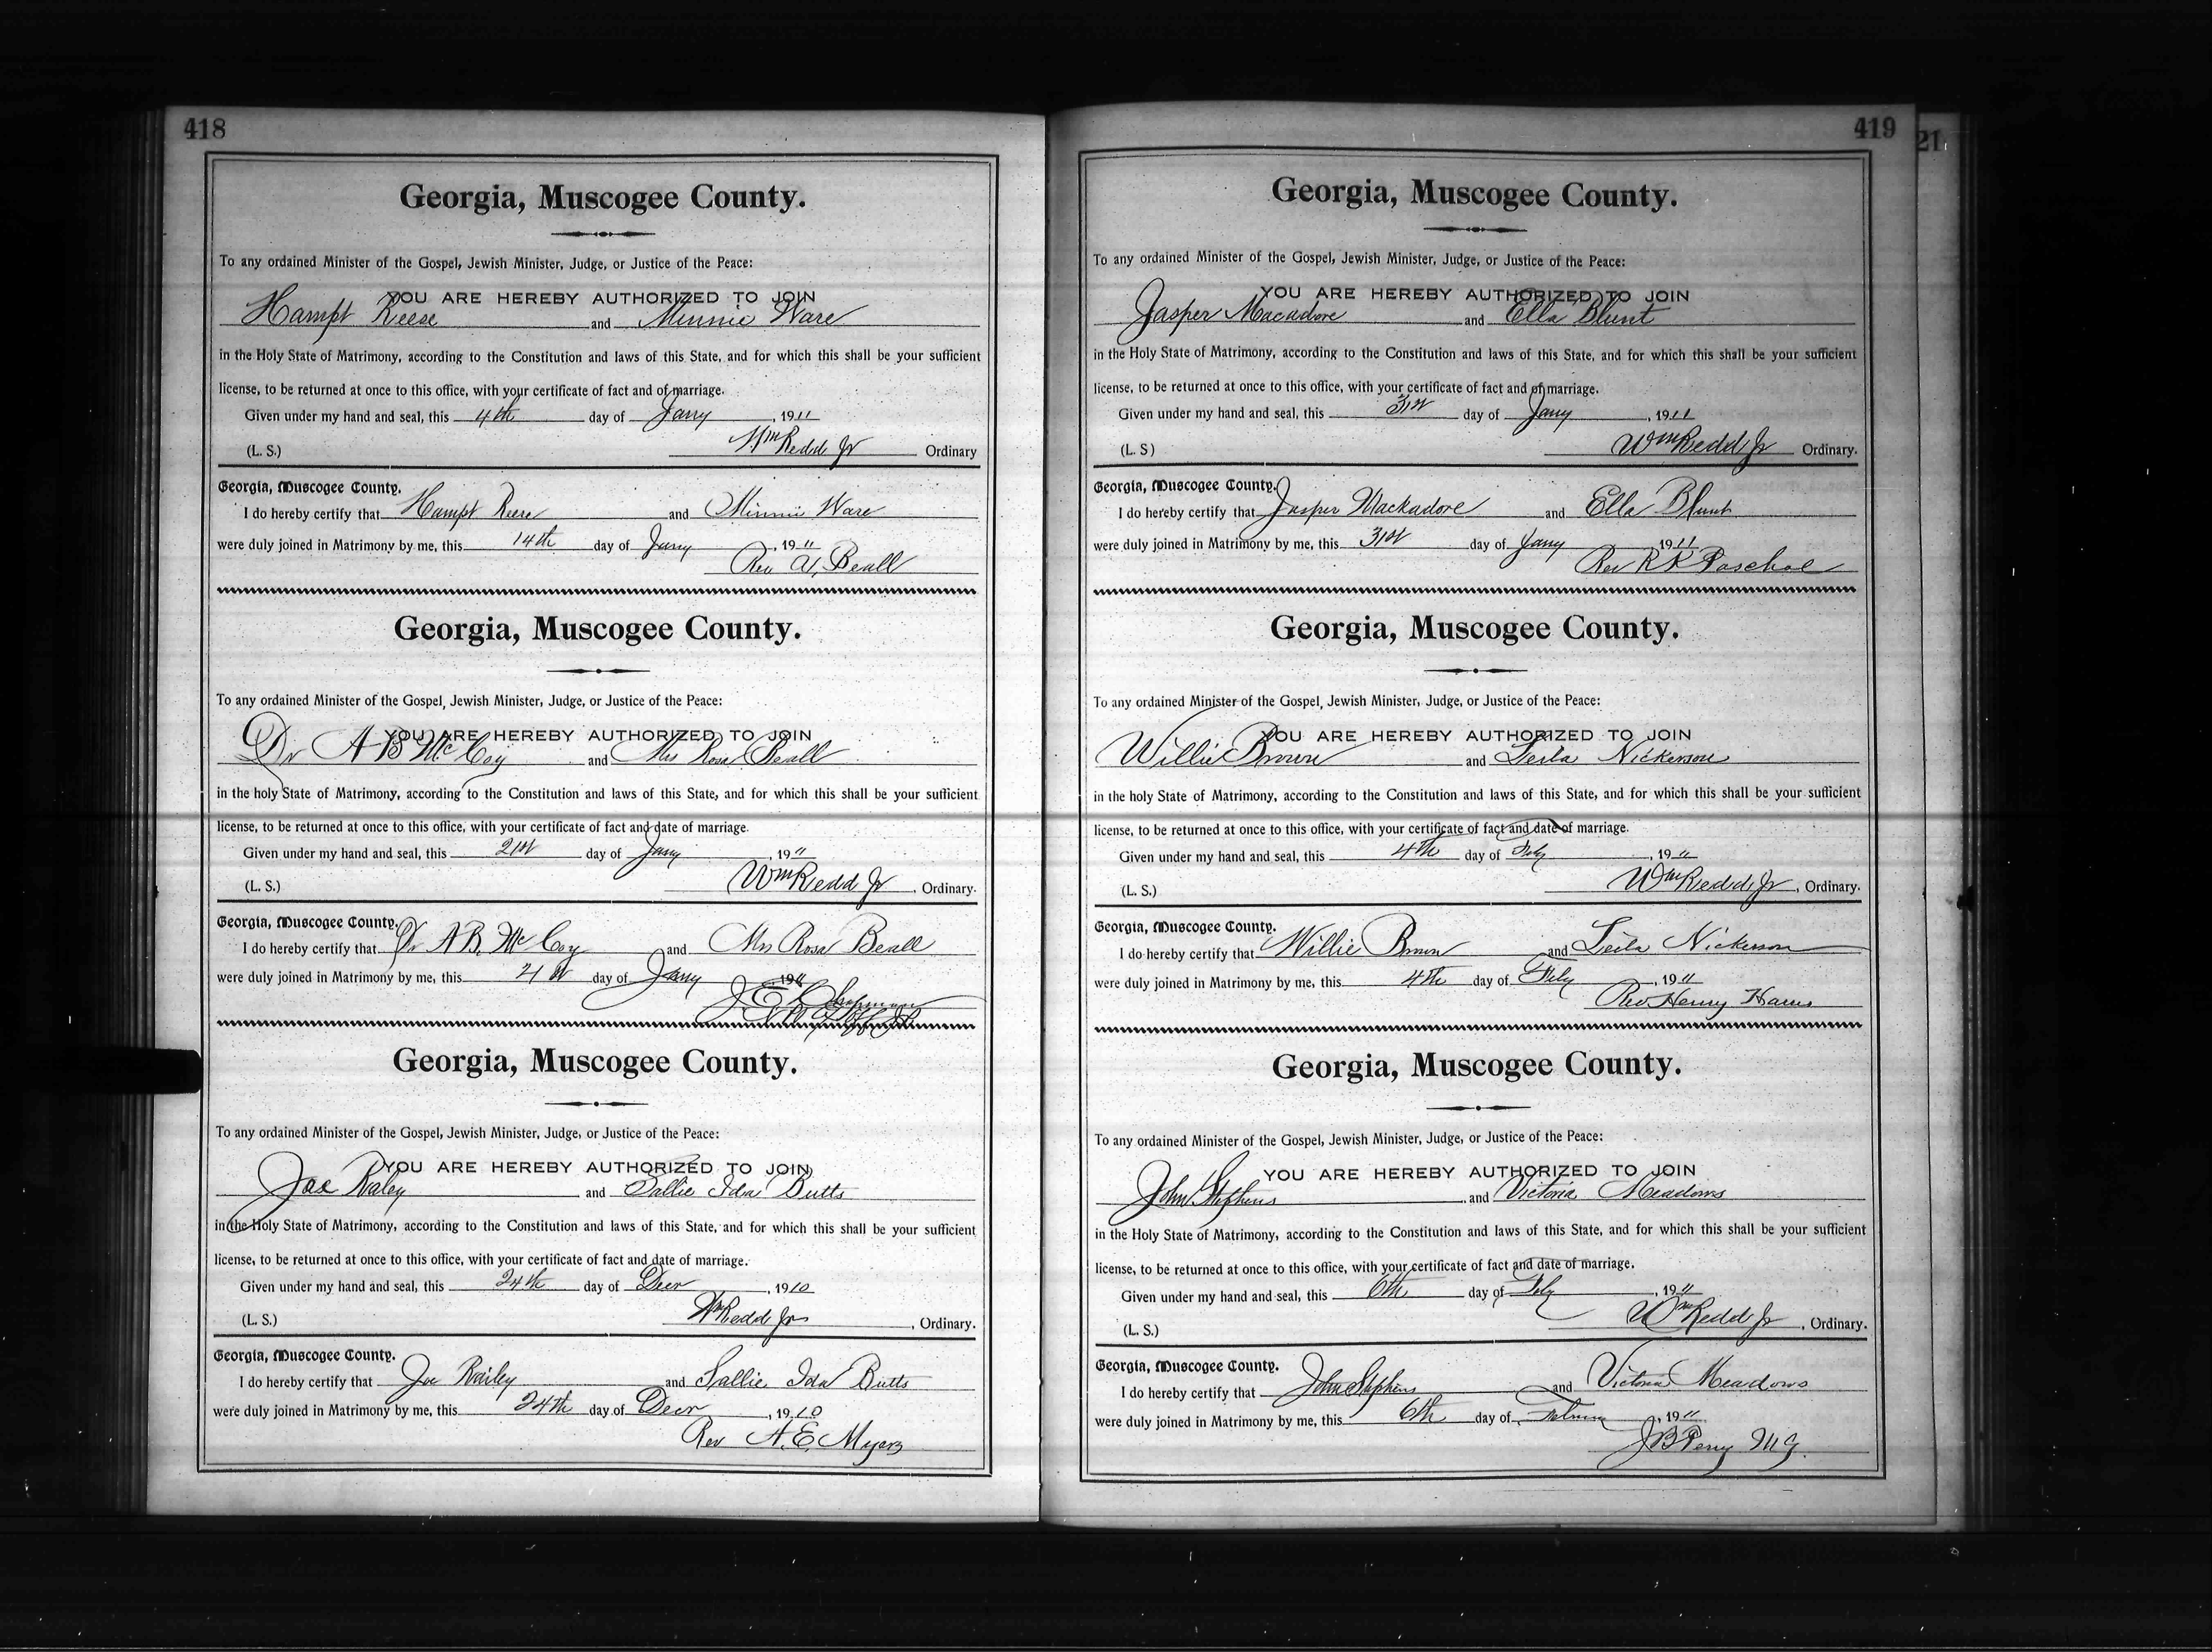 418
Georgia, Muscogee County.
To any ordained Minister of the Gospel, Jewish Minister, Judge, or Justice of the Peace:
YOU ARE HEREBY AUTHORIZED TO JOIN
Hampt Reese and Minnie Ware
in the Holy State of Matrimony, according to the Constitution and laws of this State, and for which this shall be your sufficient
license, to be returned at once to this office, with your certificate of fact and of marriage.
Given under my hand and seal, this 4th day of Jany, 1911
(L. S.) Wm Redd Jr Ordinary
Georgia, Muscogee County.
I do hereby certify that Hampt Reese and Minnie Ware
were duly joined in Matrimony by me, this 14th day of Jany, 1911
Rev A. Beall
Georgia, Muscogee County.
To any ordained Minister of the Gospel, Jewish Minister, Judge, or Justice of the Peace:
YOU ARE HEREBY AUTHORIZED TO JOIN
Dr A B McCoy and Mrs Rosa Beall
in the holy State of Matrimony, according to the Constitution and laws of this State, and for which this shall be your sufficient
license, to be returned at once to this office, with your certificate of fact and date of marriage.
Given under my hand and seal, this 21st day of Jany, 1911
(L. S.) Wm Redd Jr, Ordinary.
Georgia, Muscogee County.
I do hereby certify that Dr A B. McCoy and Mrs Rosa Beall
were duly joined in Matrimony by me, this 21st day of Jany, 1911
J E Chapman
Georgia, Muscogee County.
To any ordained Minister of the Gospel, Jewish Minister, Judge, or Justice of the Peace:
YOU ARE HEREBY AUTHORIZED TO JOIN
Joe Raley and Sallie Ida Butts
in the Holy State of Matrimony, according to the Constitution and laws of this State, and for which this shall be your sufficient
license, to be returned at once to this office, with your certificate of fact and date of marriage.
Given under my hand and seal, this 24th day of Decr, 1910
(L. S.) Wm Redd Jr, Ordinary.
Georgia, Muscogee County.
I do hereby certify that Joe Railey and Sallie Ida Butts
were duly joined in Matrimony by me, this 24th day of Decr, 1910
Rev A. E. Myers
419
21
Georgia, Muscogee County.
To any ordained Minister of the Gospel, Jewish Minister, Judge, or Justice of the Peace:
YOU ARE HEREBY AUTHORIZED TO JOIN
Jasper Macadore and Ella Blunt
in the Holy State of Matrimony, according to the Constitution and laws of this State, and for which this shall be your sufficient
license, to be returned at once to this office, with your certificate of fact and of marriage.
Given under my hand and seal, this 31st day of Jany, 1911
(L. S) Wm Redd Jr Ordinary.
Georgia, Muscogee County.
I do hereby certify that Jasper Mackadore and Ella Blunt
were duly joined in Matrimony by me, this 31st day of Jany, 1911
Rev R K Paschal
Georgia, Muscogee County.
To any ordained Minister of the Gospel, Jewish Minister, Judge, or Justice of the Peace:
YOU ARE HEREBY AUTHORIZED TO JOIN
Willie Brown and Leila Nickerson
in the holy State of Matrimony, according to the Constitution and laws of this State, and for which this shall be your sufficient
license, to be returned at once to this office, with your certificate of fact and date of marriage.
Given under my hand and seal, this 4th day of Feby, 1911
(L. S.) Wm Redd Jr, Ordinary.
Georgia, Muscogee County.
I do hereby certify that Willie Brown and Leila Nickerson
were duly joined in Matrimony by me, this 4th day of Feby, 1911
Rev Henry Harris
Georgia, Muscogee County.
To any ordained Minister of the Gospel, Jewish Minister, Judge, or Justice of the Peace:
YOU ARE HEREBY AUTHORIZED TO JOIN
John Stephens and Victoria Meadows
in the Holy State of Matrimony, according to the Constitution and laws of this State, and for which this shall be your sufficient
license, to be returned at once to this office, with your certificate of fact and date of marriage.
Given under my hand and seal, this 6th day of Feby, 1911
(L. S.) Wm Redd Jr, Ordinary.
Georgia, Muscogee County.
I do hereby certify that John Stephens and Victoria Meadows
were duly joined in Matrimony by me, this 6th day of, 1911
J B Perry M G.